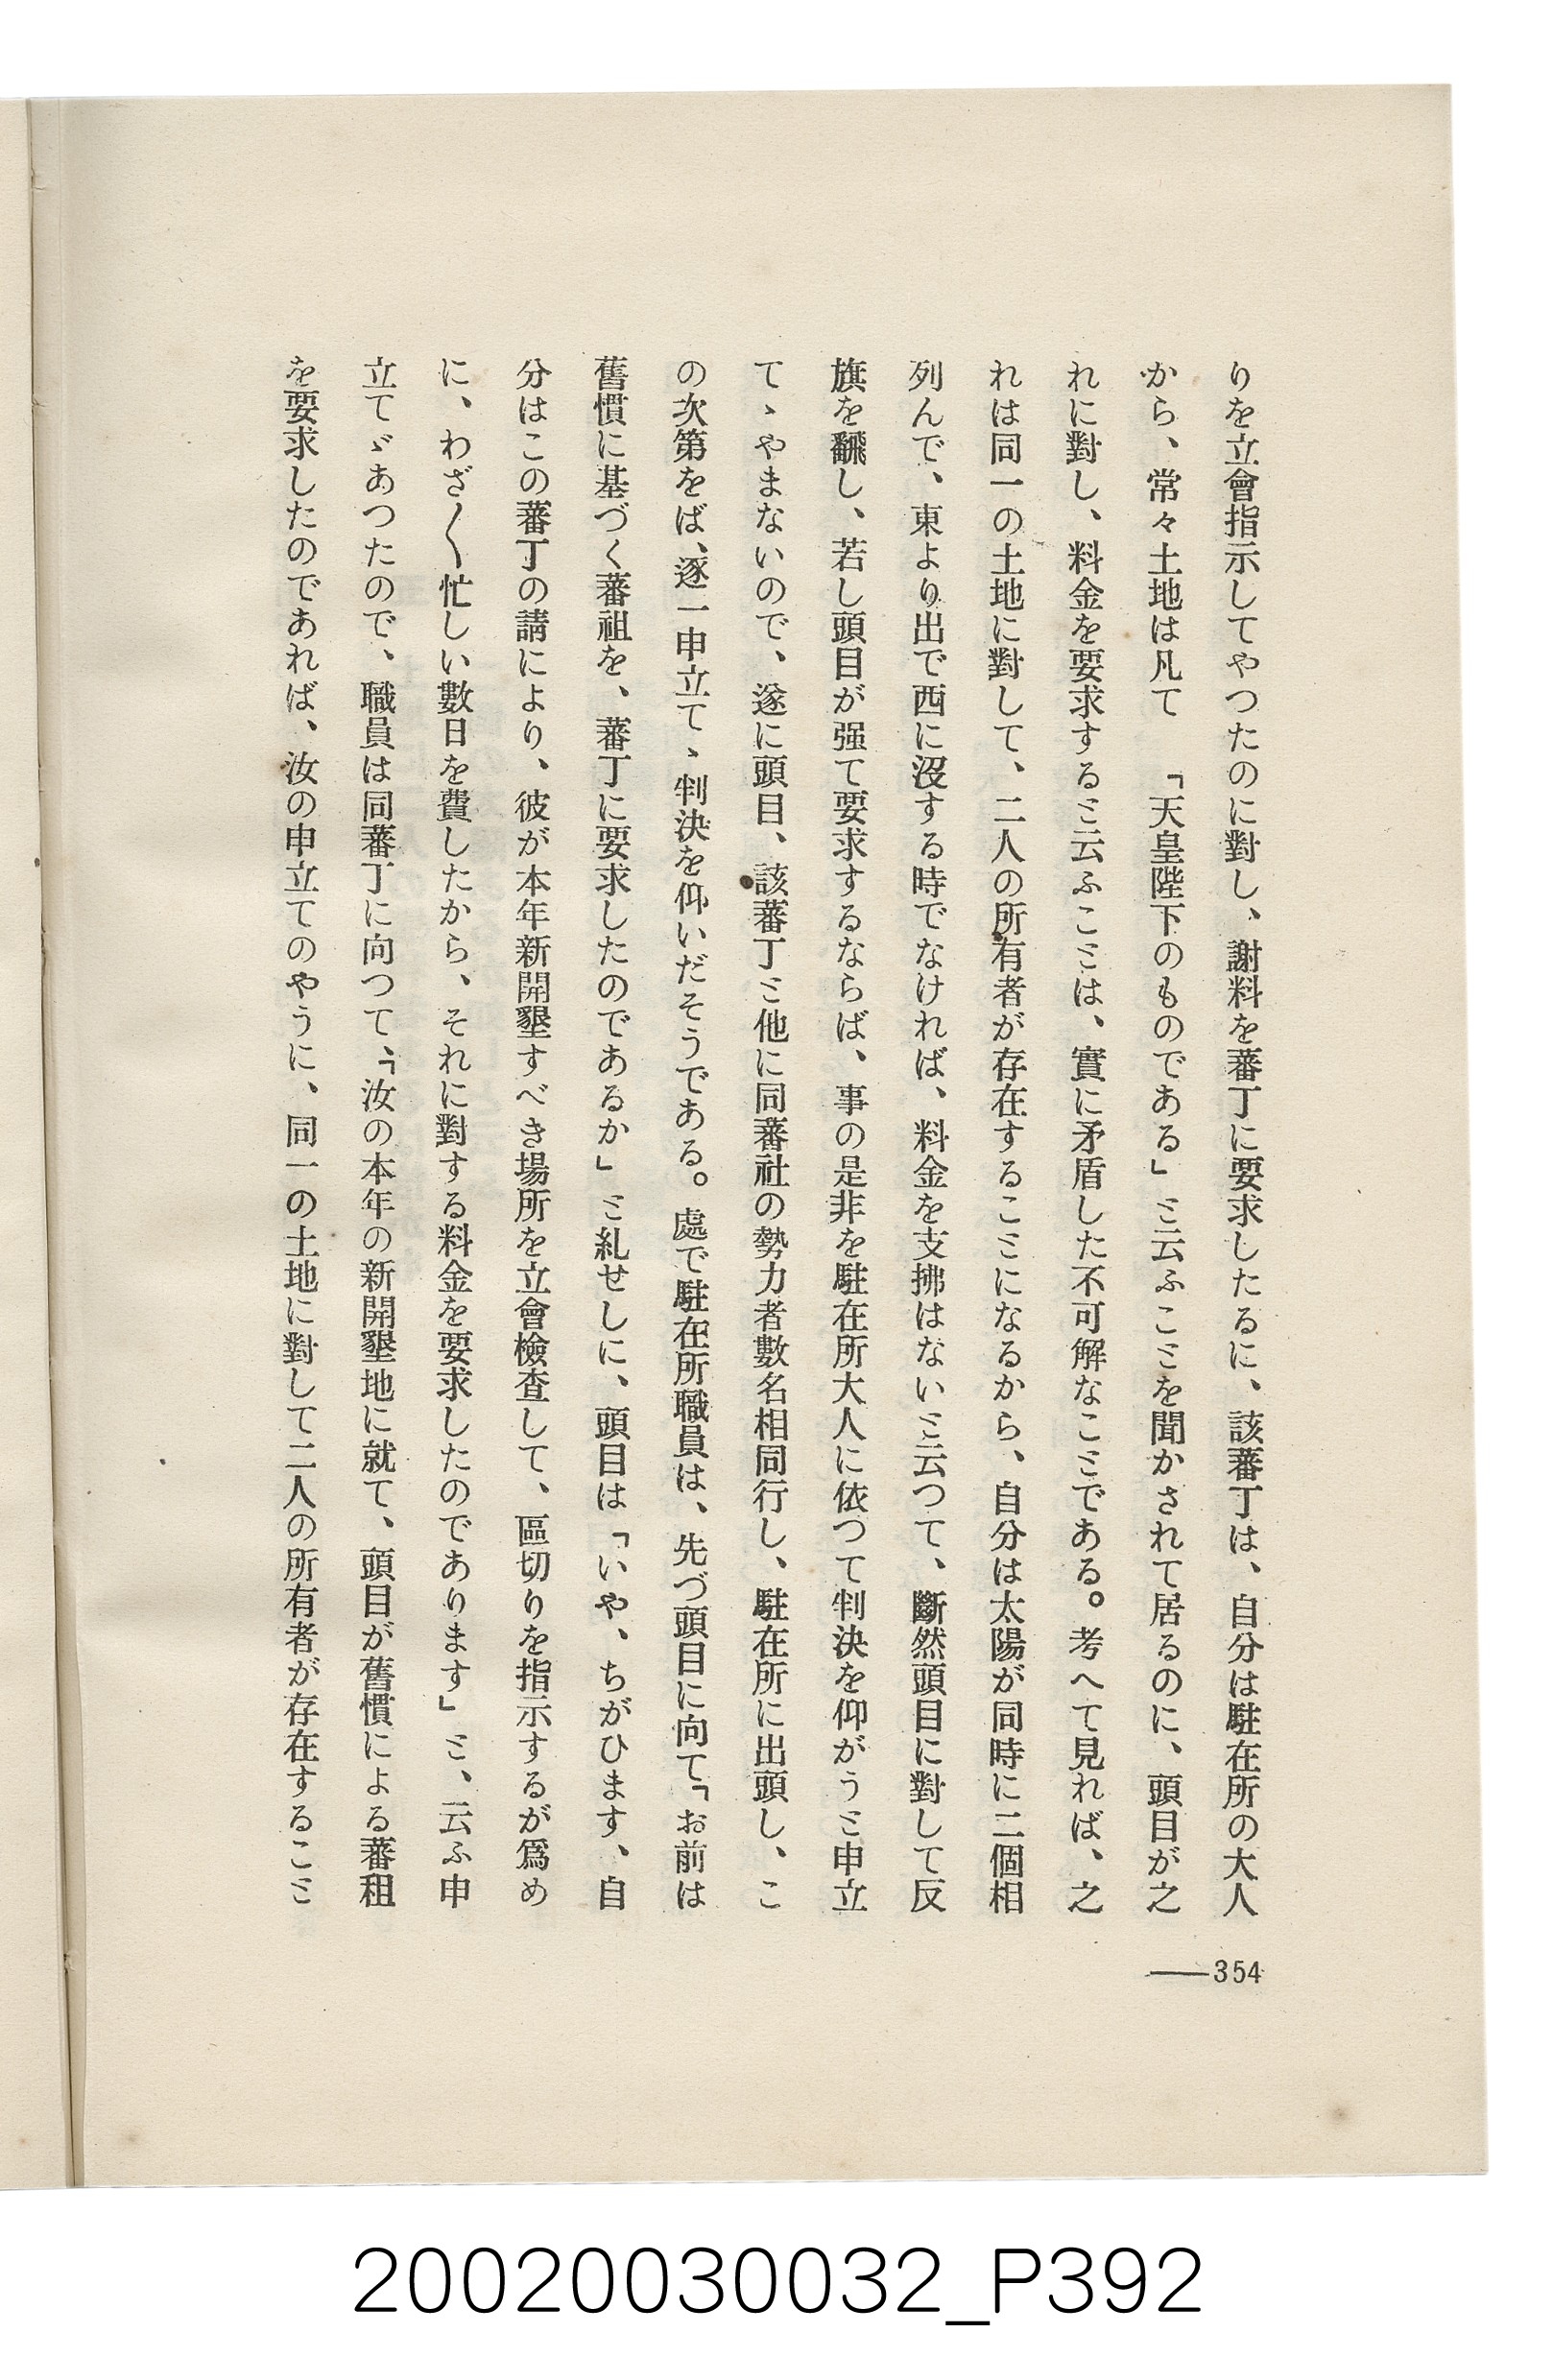 りを立會指示してやつたのに對し、謝料を蕃丁に要求したるに、該蕃丁は、自分は駐在所の大人
から、常々土地は凡て　「天皇陛下のものである」ミ云ふこミを聞かされて居るのに、頭目が之
れに對し、料金を要求するミ云ふこミは、實に矛盾した不可解なこミである。考へて見れば、之
れは同一の土地に對して、二人の所有者が存在するこミになるから、自分は太陽が同時に二個相
列んで、東より出で西に沒する時でなければ、料金を支拂はないミ云つて、斷然頭目に對して反
旗を飜し、若し頭目が强て要求するならば、事の是非を駐在所大人に依つて判決を仰がうミ申立
てゝやまないので、遂に頭目、該蕃丁ミ他に同蕃社の勢力者數名相同行し、駐在所に出頭し、こ
の次第をば、逐一申立てゝ判決を仰いだそうである。處で駐在所職員は、先づ頭目に向て「お前は
舊慣に基づく蕃祖を、蕃丁に要求したのであるか」ミ糺せしに、頭目は「いや、ちがひます、自
分はこの蕃丁の請により、彼が本年新開墾すべき場所を立會檢査して、區切りを指示するが爲め
に、わざ〱忙しい數日を費したから、それに對する料金を要求したのであります」ミ、云ふ申
立てゞあつたので、職員は同蕃丁に向つて、「汝の本年の新開墾地に就て、頭目が舊慣による蕃租
を要求したのであれば、汝の申立てのやうに、同一の土地に對して二人の所有者が存在するこミ
——354
20020030032_P392